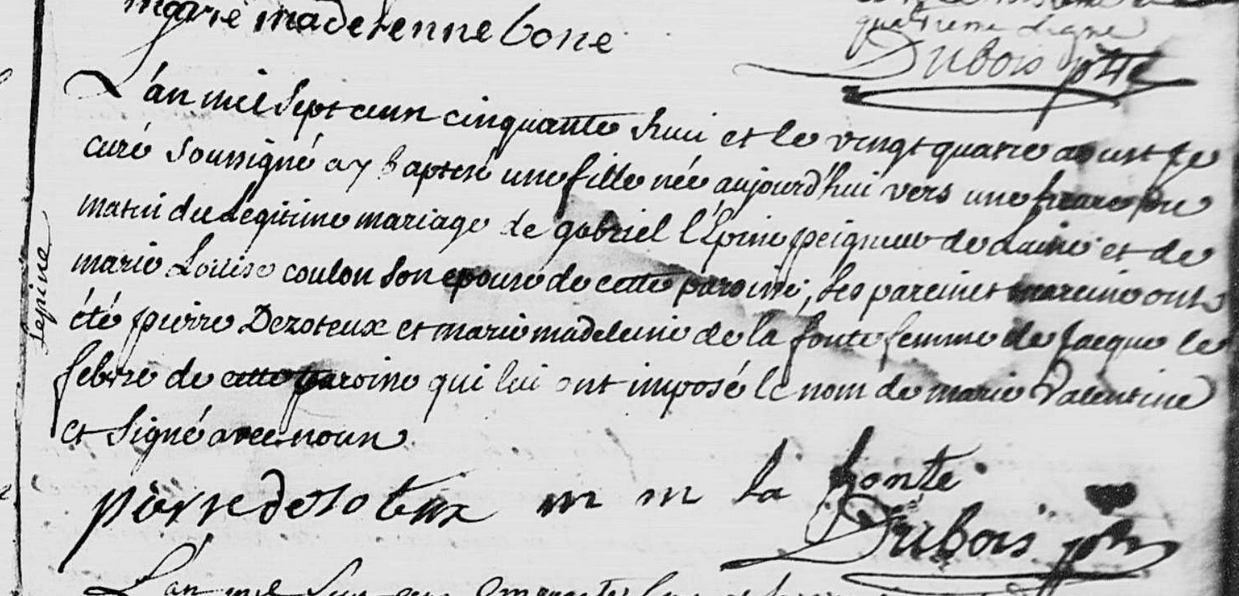 marie madelenne bone
quatrieme Ligne
Dubois ptre
L'an mil sept cens cinquante huit et le vingt quatre aoust je
curé soussigné ay baptisé une fille née aujourd'hui vers une heure du
matin du legitime mariage de gabriel l'Epine peigneur de Laine et de
marie Louise coulon son epouse de cette paroisse, ses parein et mareine ont
été pierre Dezoteux et marie madeleine de la fonte femme de jacque le
febvre de cette paroisse qui lui ont imposé le nom de marie valentine
et signé avec nous
lepine
pierre desoteux m m la fonte
Dubois ptre
L'an mil